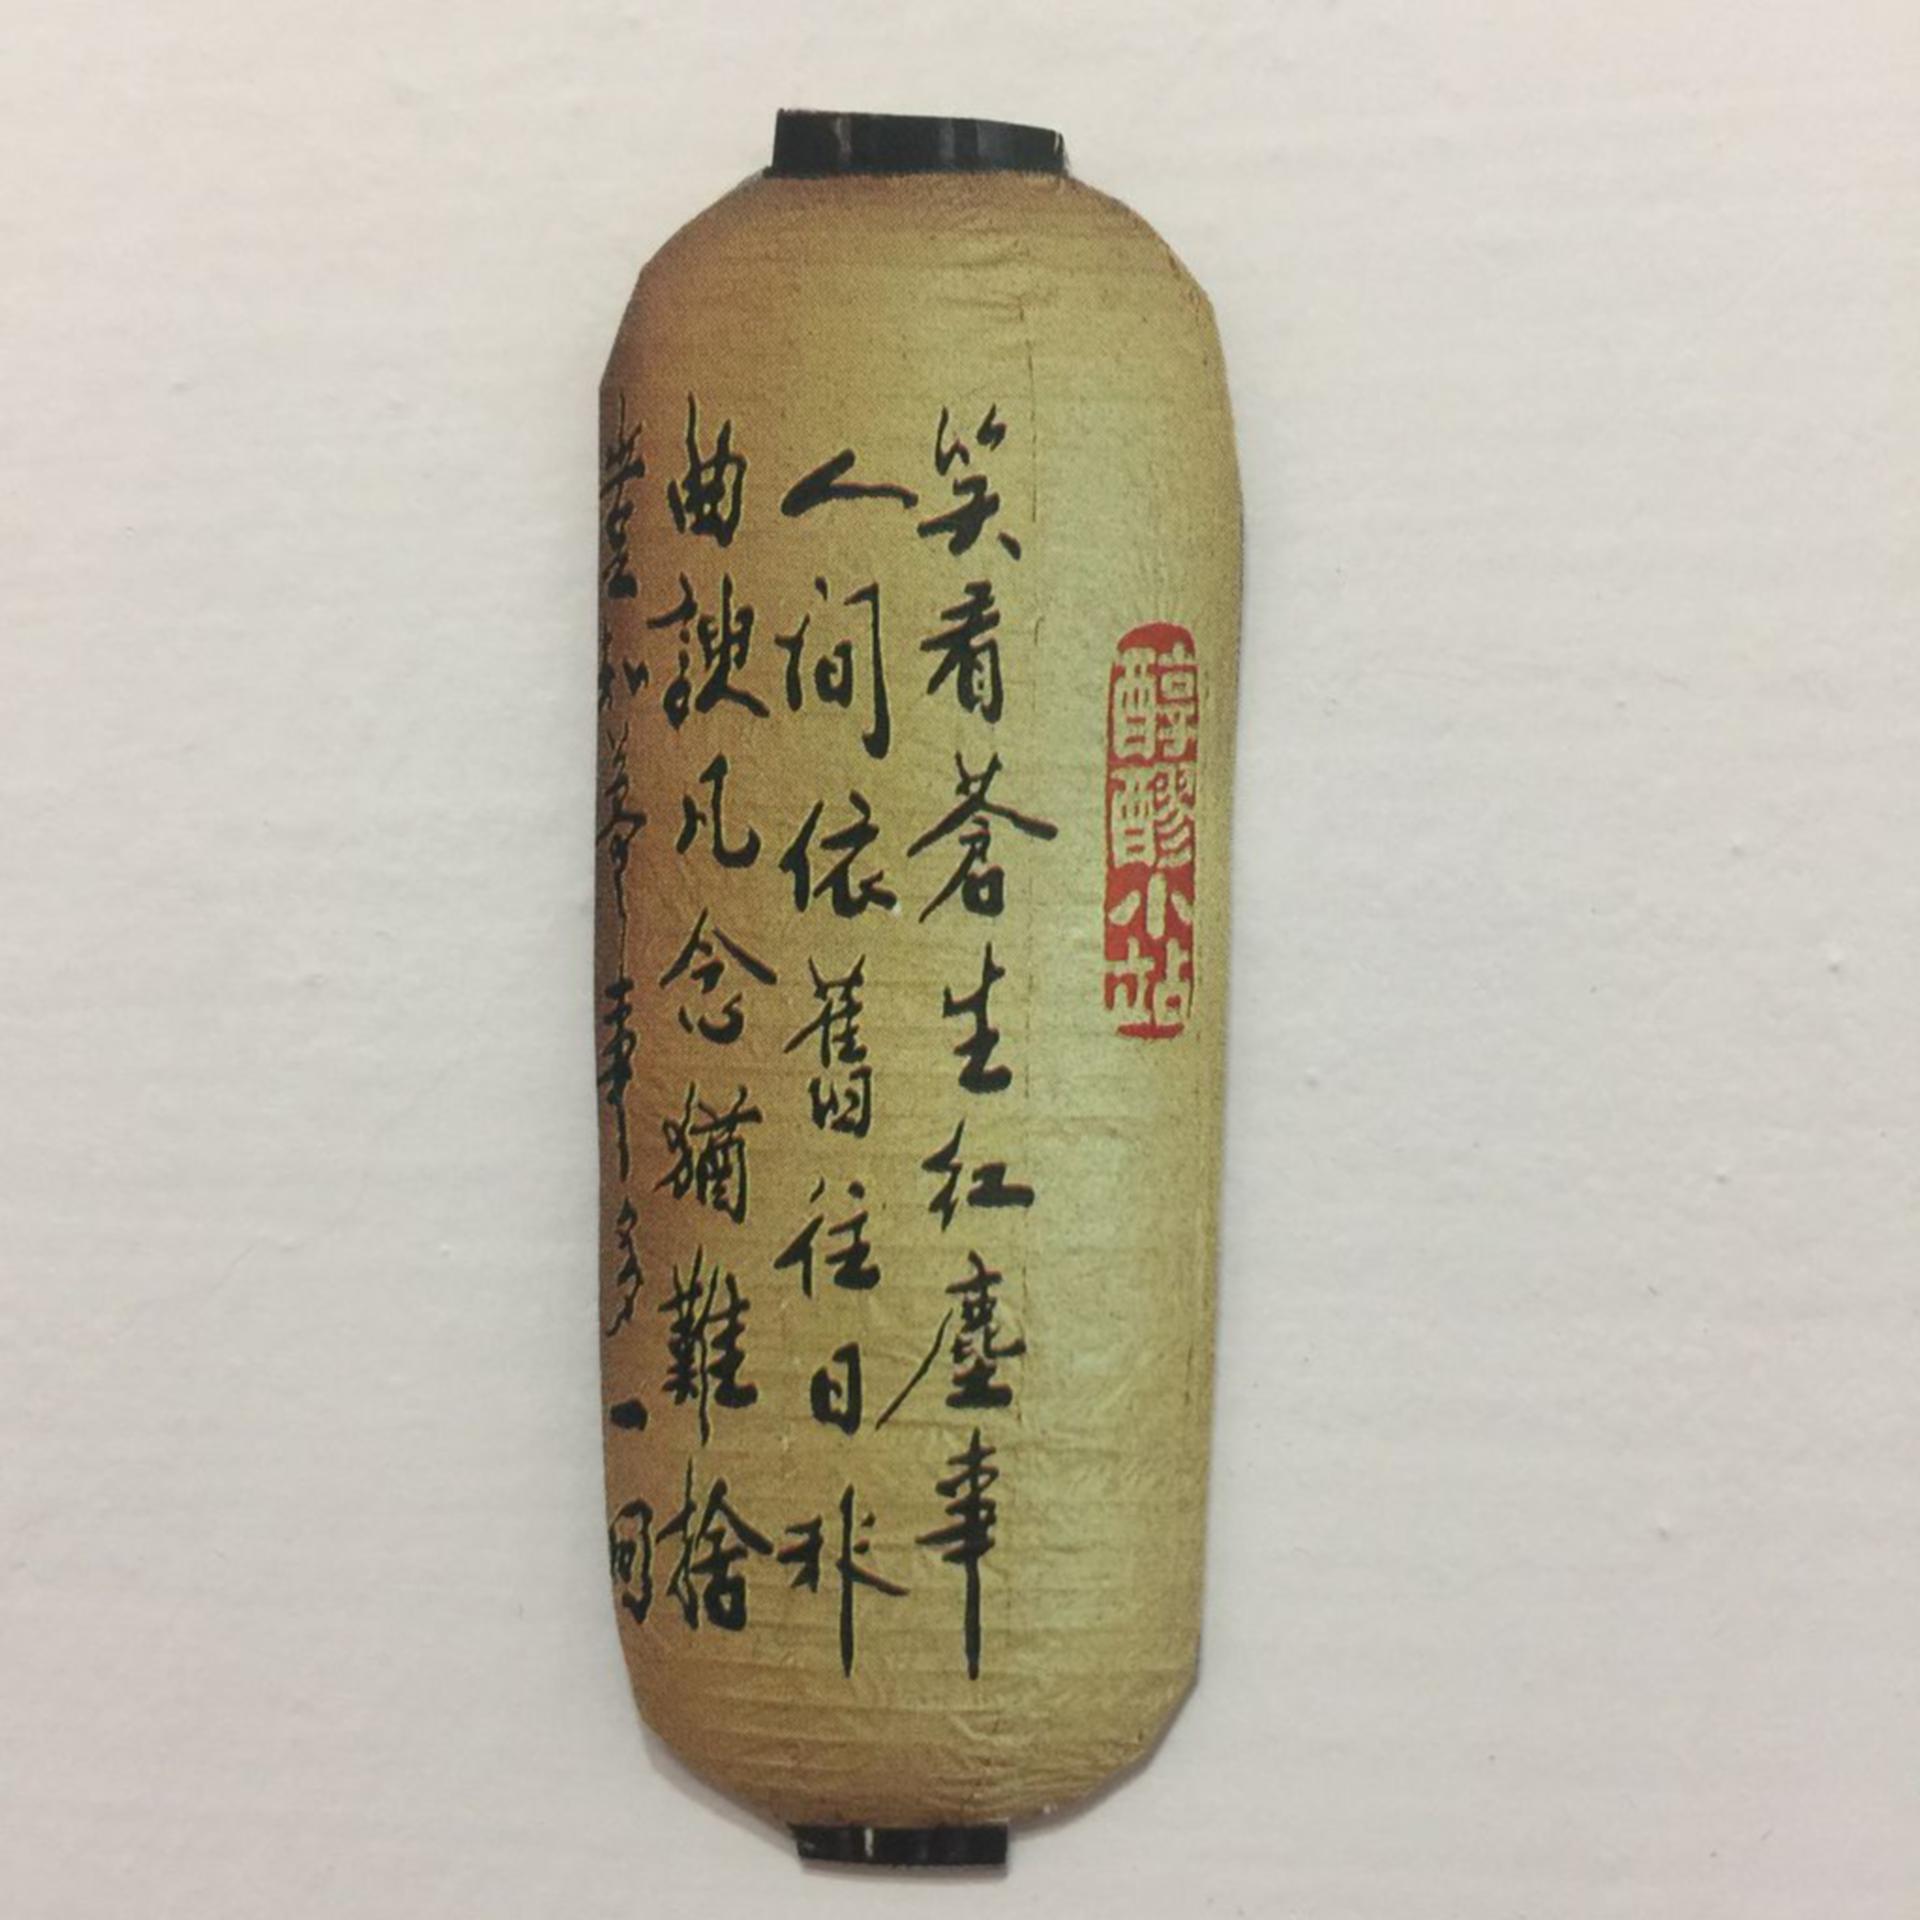 醇醪小站
笑看蒼生紅塵事
人間依舊往日非
曲諛凡念猶難捨
豈知事多一